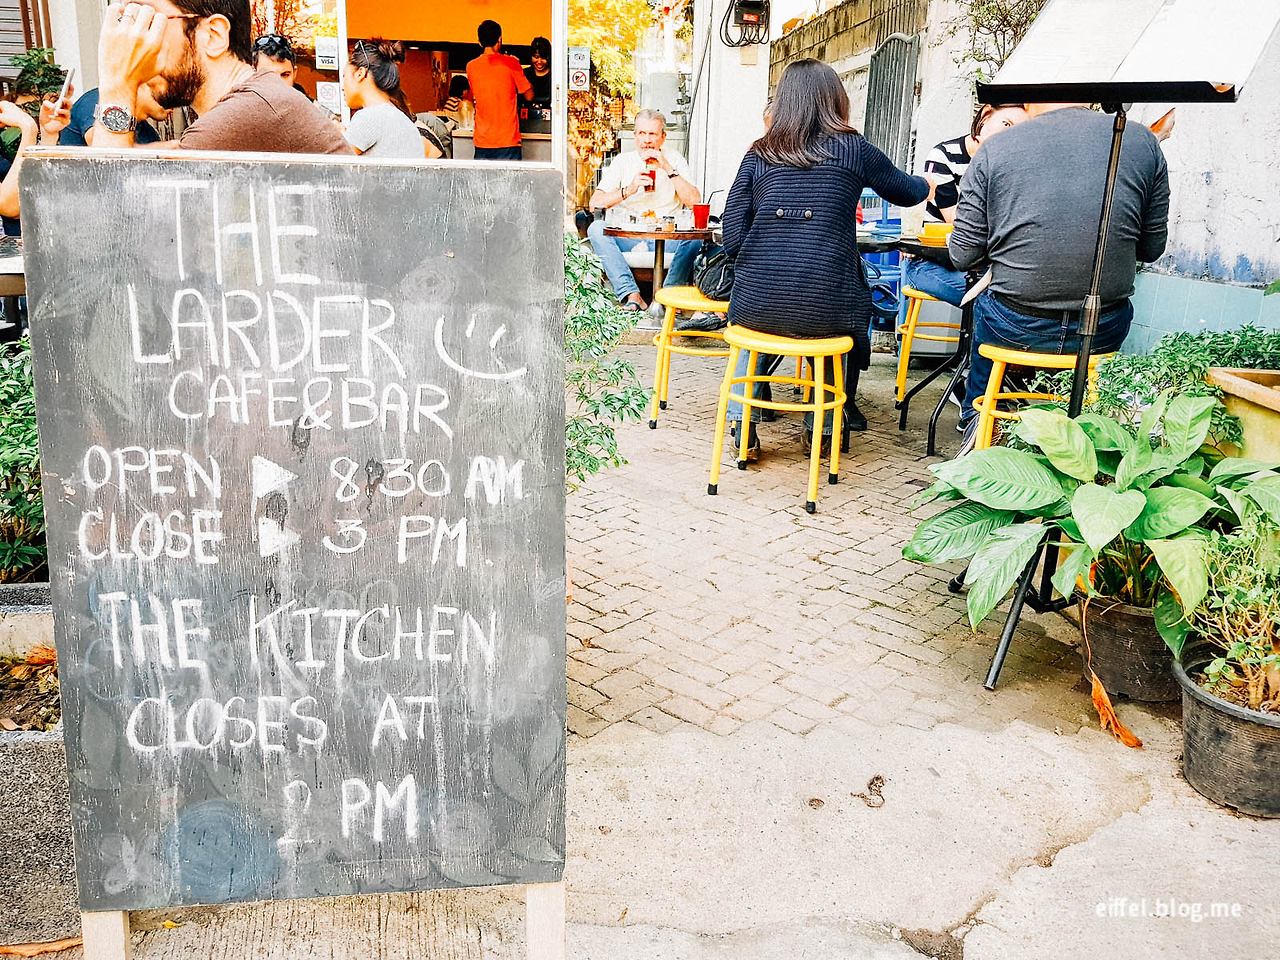 THE
LARDER
CAFE&BAR
OPEN ▶ 8:30 AM
CLOSE ▶ 3 PM
THE KITCHEN
CLOSES AT
2 PM
VISA
eiffel.blog.me